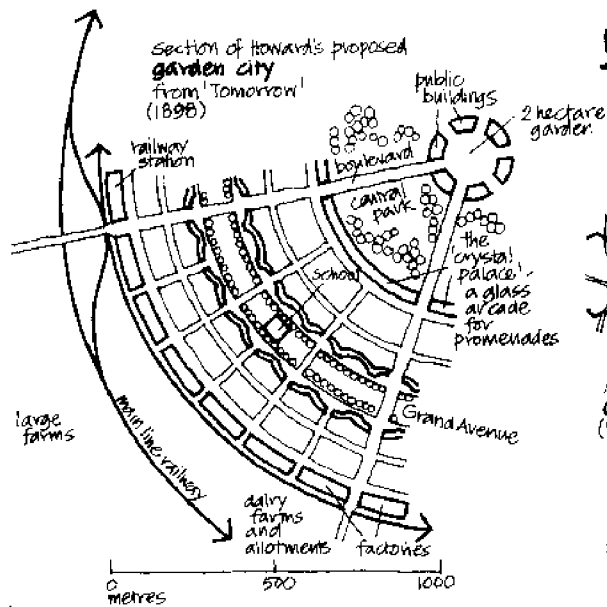 section of Howard's proposed
garden city
from 'Tomorrow'
(1898)
public
buildings
2 hectare
garden
railway
station
boulevard
central
park
the
'crystal
palace'
a glass
arcade
for
promenades
school
Grand Avenue
large
farms
main line railway
dairy
farms
and
allotments
factories
0 500 1000
metres